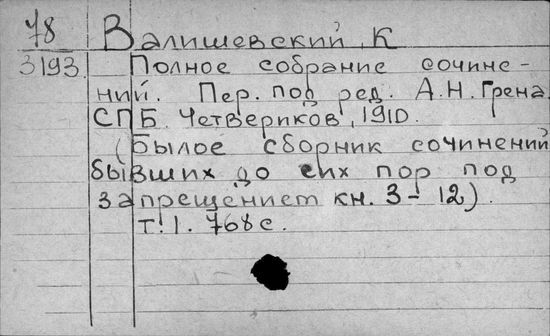 78 Валишевский, К
3193. Полное собрание сочине-
ний. Пер. под ред. А.Н. Грена
СПБ. Четвериков, 1910.
(Былое сборник сочинений
бывших до сих пор под
запрещением кн. 3-12).
т. 1. 768 с.